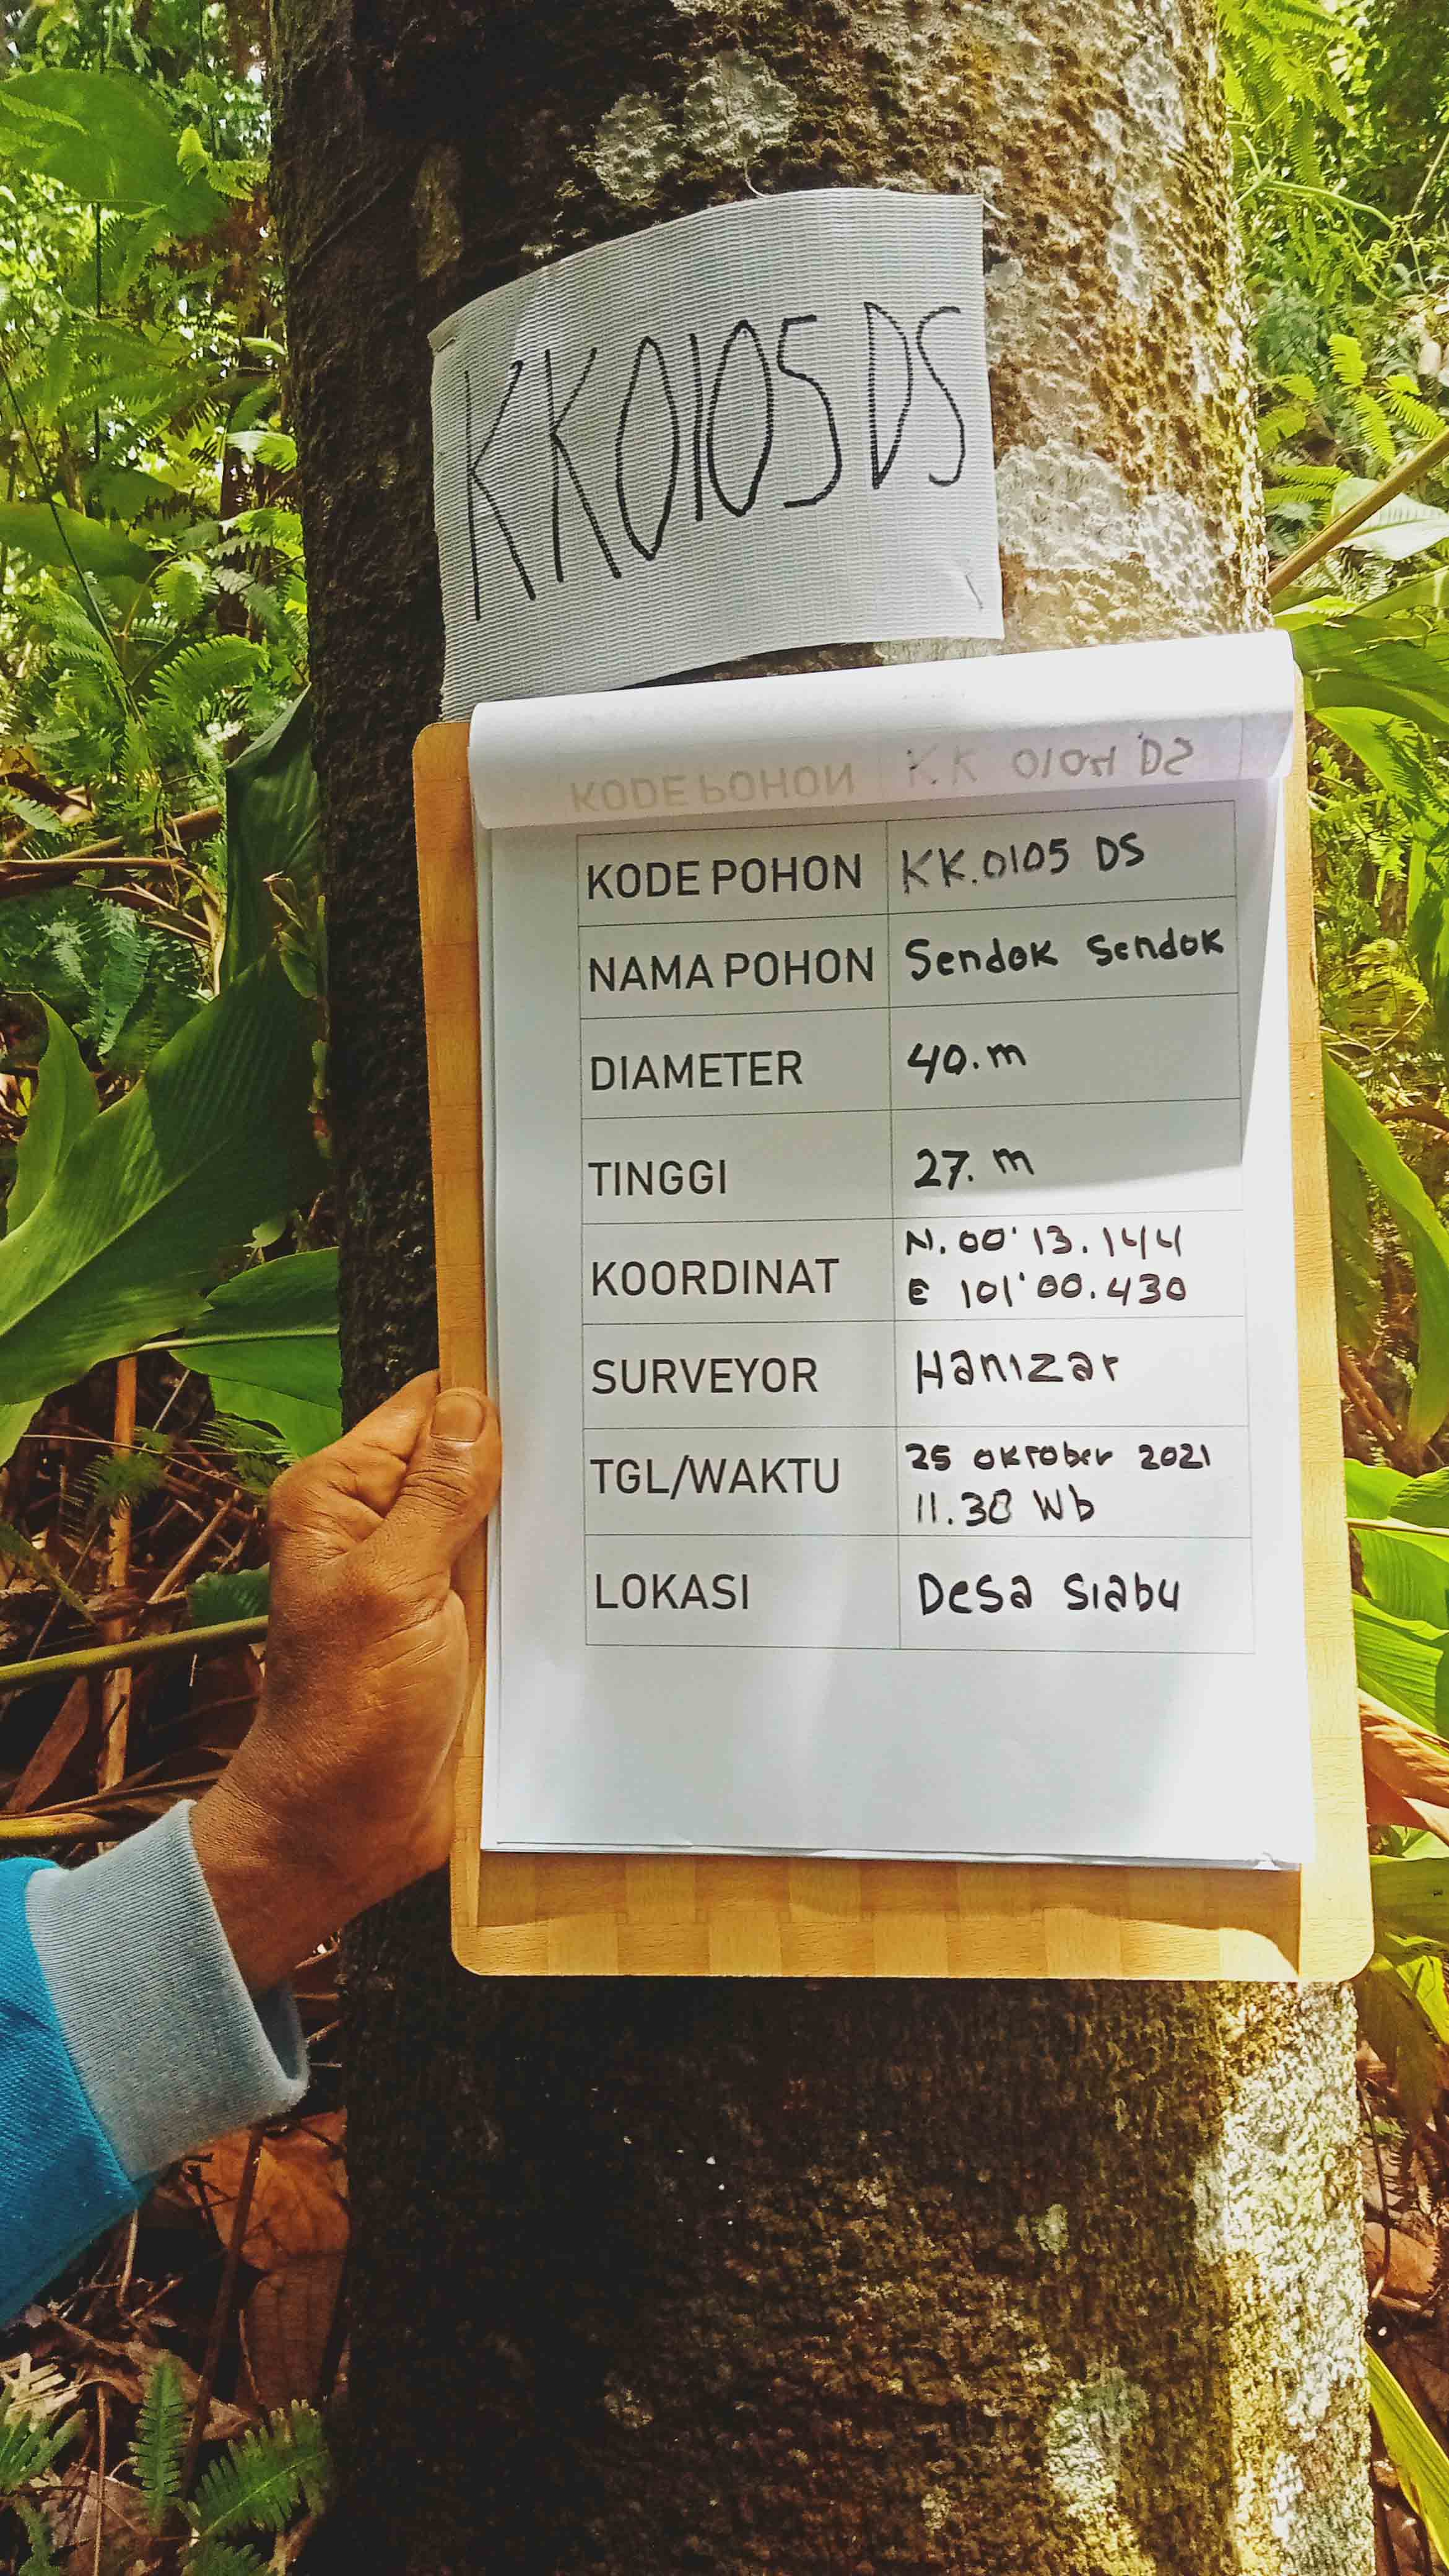 KK0105 DS
KODE POHON KK 0104 DS
KODE POHON KK.0105 DS
NAMA POHON Sendok Sendok
DIAMETER 40.m
TINGGI 27. m
KOORDINAT N. 00' 13. 144
E 101' 00. 430
SURVEYOR Hanizar
TGL/WAKTU 25 oktober 2021
11.30 Wb
LOKASI Desa Siabu